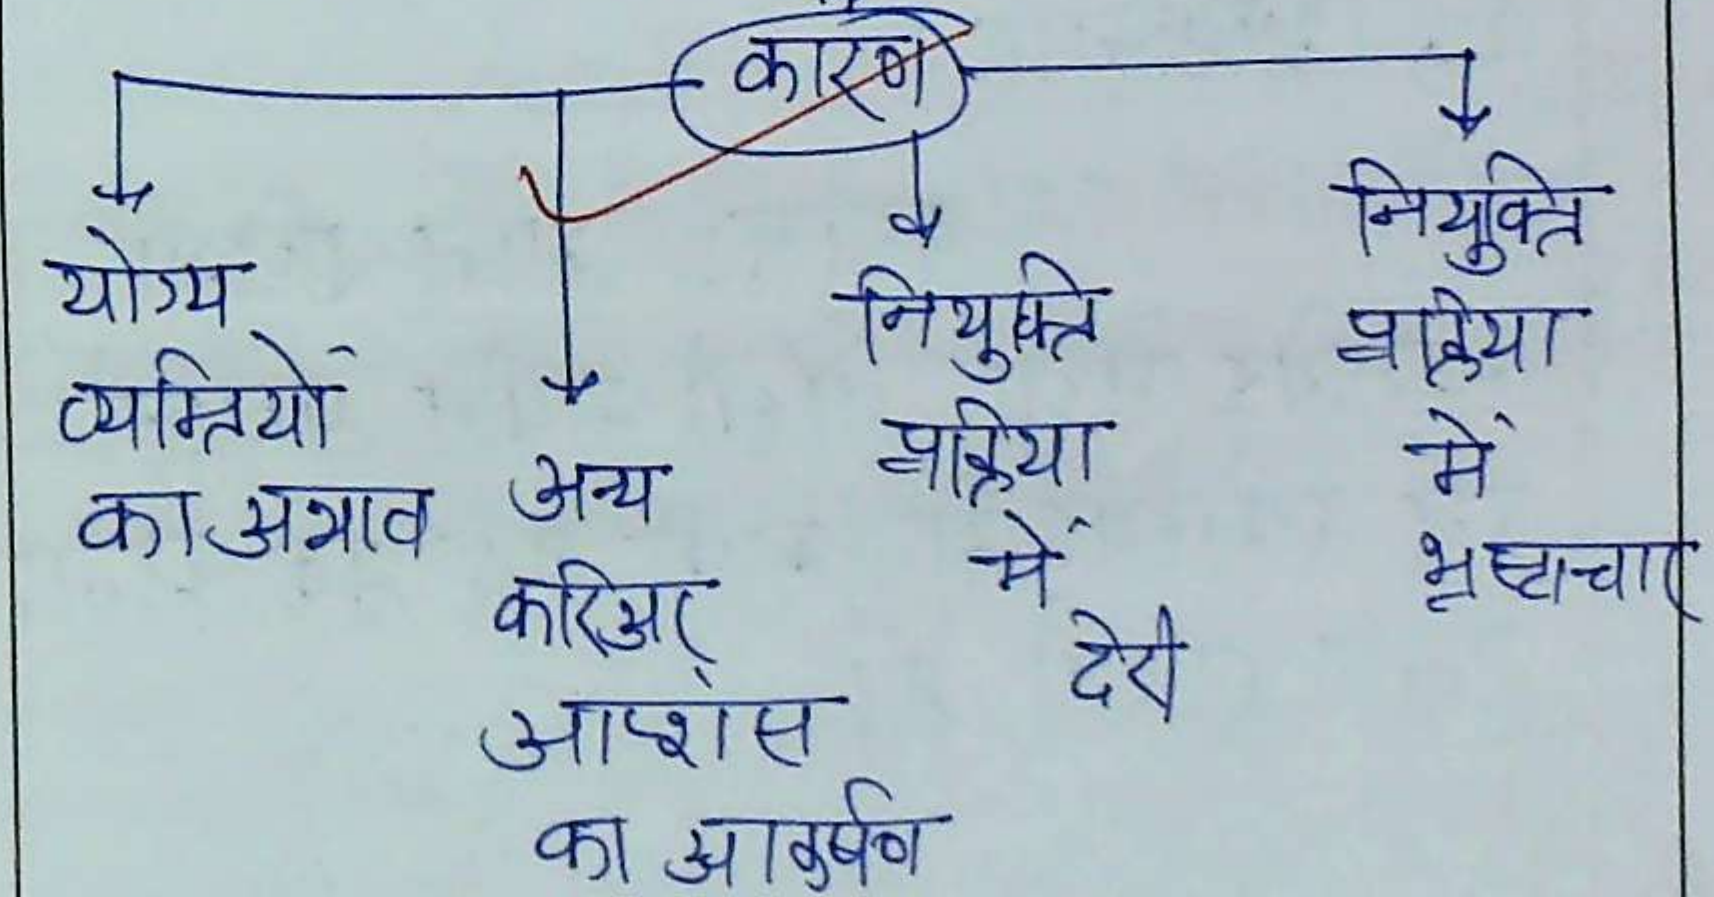 कारण
योग्य
व्यक्तियों
का अभाव
अन्य
करिअर
आप्शंस
का आकर्षण
नियुक्ति
प्रक्रिया
में
देरी
नियुक्ति
प्रक्रिया
में
भृष्टाचार